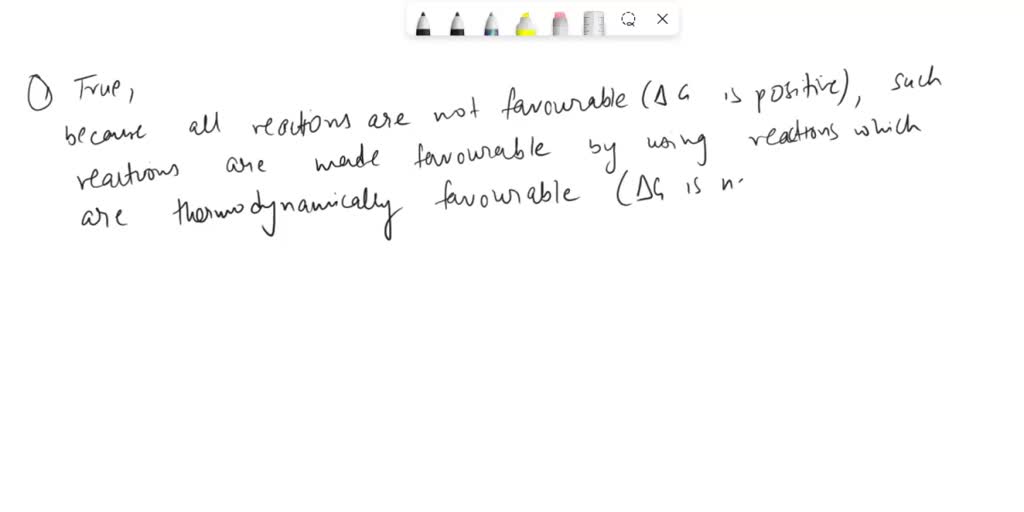 ① True,
because all reactions are not favourable (ΔG is positive), such
reactions are made favourable by using reactions which
are thermodynamically favourable (ΔG is n